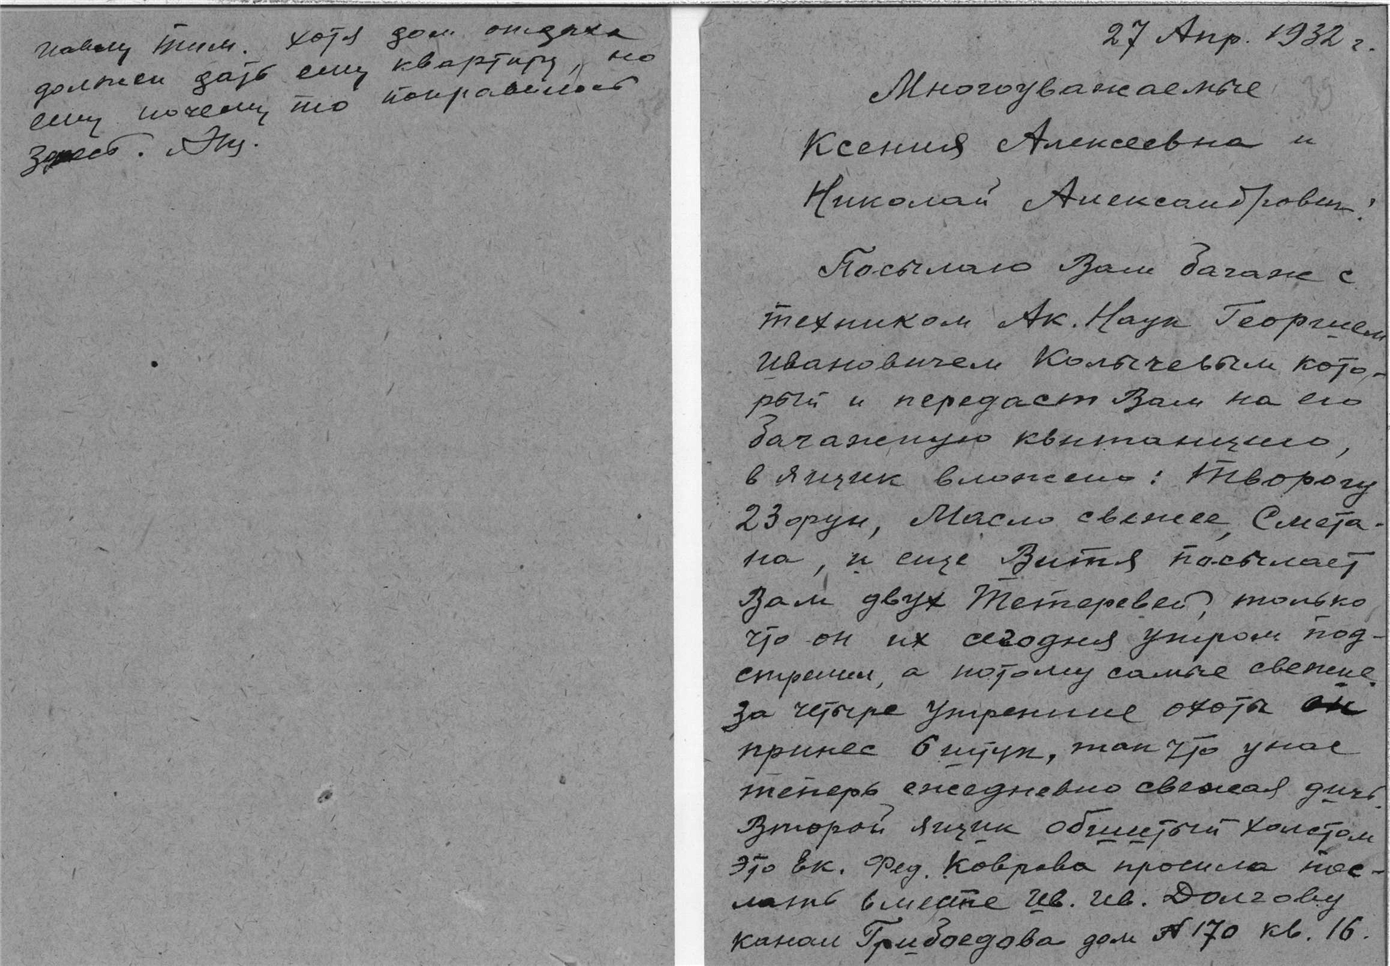 Павлу Тим. хотя дом отдыха
должен дать ему квартиру, но
ему почему то понравилось
здесь.
27 Апр. 1932 г.
39
Многоуважаемые
Ксения Алексеевна и
Николай Александрович!
Посылаю Вам багаж с
техником Ак. Наук Георгием
Ивановичем Колычевым кото-
рый и передаст Вам на его
багажную квитанцию,
в ящик вложено: Творогу
23 фун, Масло свежее, Смета-
на, и еще Витя посылает
Вам двух Тетеревей, только
что он их сегодня утром под-
стрелил, а потому самые свежие.
За четыре утренние охоты он
принес 6 штук, так что у нас
теперь ежедневно свежая дичь.
Второй ящик обшитый холстом
это Ек. Фед. Коврова просила пос-
лать вместе Ив. Ив. Долгову
канал Грибоедова дом № 170 кв. 16.